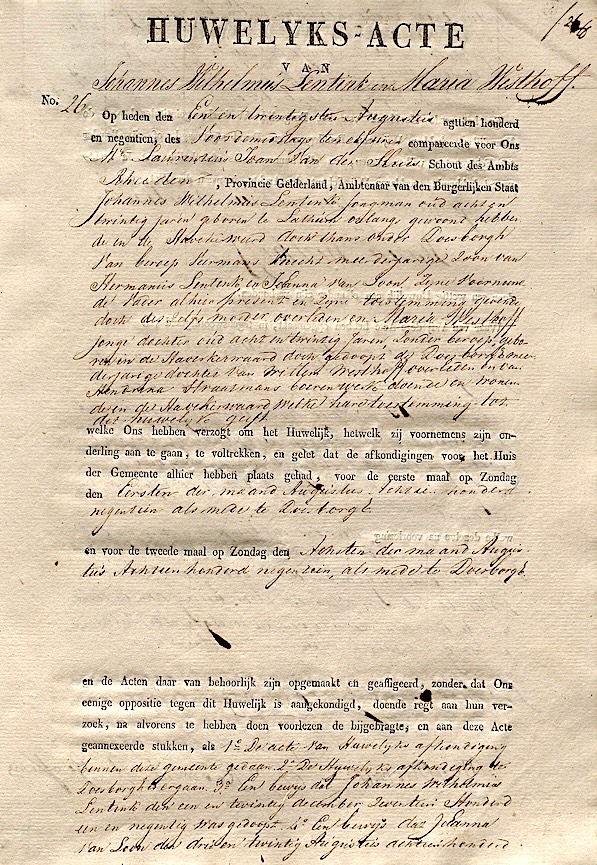 HUWELYKS-ACTE
VAN
Johannes Wilhelmus Lentink en Maria Westhoff.
No. 26
Op heden den Een en twintigsten Augustus agttien honderd
en negentien, des Voordemiddags ten elf uren compareerde voor Ons
Mr. Laurentius Joan Van der Sluis Schout des Ambts
Rheeden, Provincie Gelderland, Ambtenaar van den Burgerlijken Staat
Johannes Wilhelmus Lentink jongman oud acht en
twintig jaren geboren te Lathum oslang, gewoond hebben
de in de Haverkerward doch thans onder Doesborgh
Van beroep knecht meerderjarige Zoon van
Hermanus Lentenk en Johanna Van Loon, Zijne Voornoem
de Vader alhier present en Zijne toestemming gevende
doch des Zelfs moeder overleden en Maria Westhoff
jonge dochter oud acht en twintig Jaren, Zonder beroep, gebo
ren in de Haverkerwaard doch gedoopt te Doesborgh meer
derjarige dochter van Willem Westhoff overleden en van
Hendrina Straatmans boerenwerk doende en wonen
de in de Haverkerwaard Welke haar toestemming tot
dit huwelijk geeft
welke Ons hebben verzogt om het Huwelijk, hetwelk zij voornemens zijn on-
derling aan te gaan, te voltrekken, en gelet dat de afkondigingen voor het Huis
der Gemeente alhier hebben plaats gehad, voor de eerste maal op Zondag
den Eersten der maand Augustus Achtien honderd
negentien als mede te Doesborgh
en voor de tweede maal op Zondag den Achsten der maand Augus
tus Achtien honderd negentien, als mede te Doesborgh.
en de Acten daar van behoorlijk zijn opgemaakt en geaffigeerd, zonder dat Ons
eenige oppositie tegen dit Huwelijk is aangekondigd, doende regt aan hun ver-
zoek, na alvorens te hebben doen voorlezen de bijgebragte, en aan deze Acte
geannexeerde stukken, als 1o De acte Van Huwelyks afkondiging
binnen deze gemeente gedaan 2o De Huwelyks afkondiging te
Doesborgh ergaan. 3o Een bewijs dat Johannes Wilhelmus
Lentink den een en twintig december Zeventien Honderd
een en negentig was gedoopt. 4o Een bewijs dat Johanna
Van Loon den drie en twintig Augustus achtienhonderd